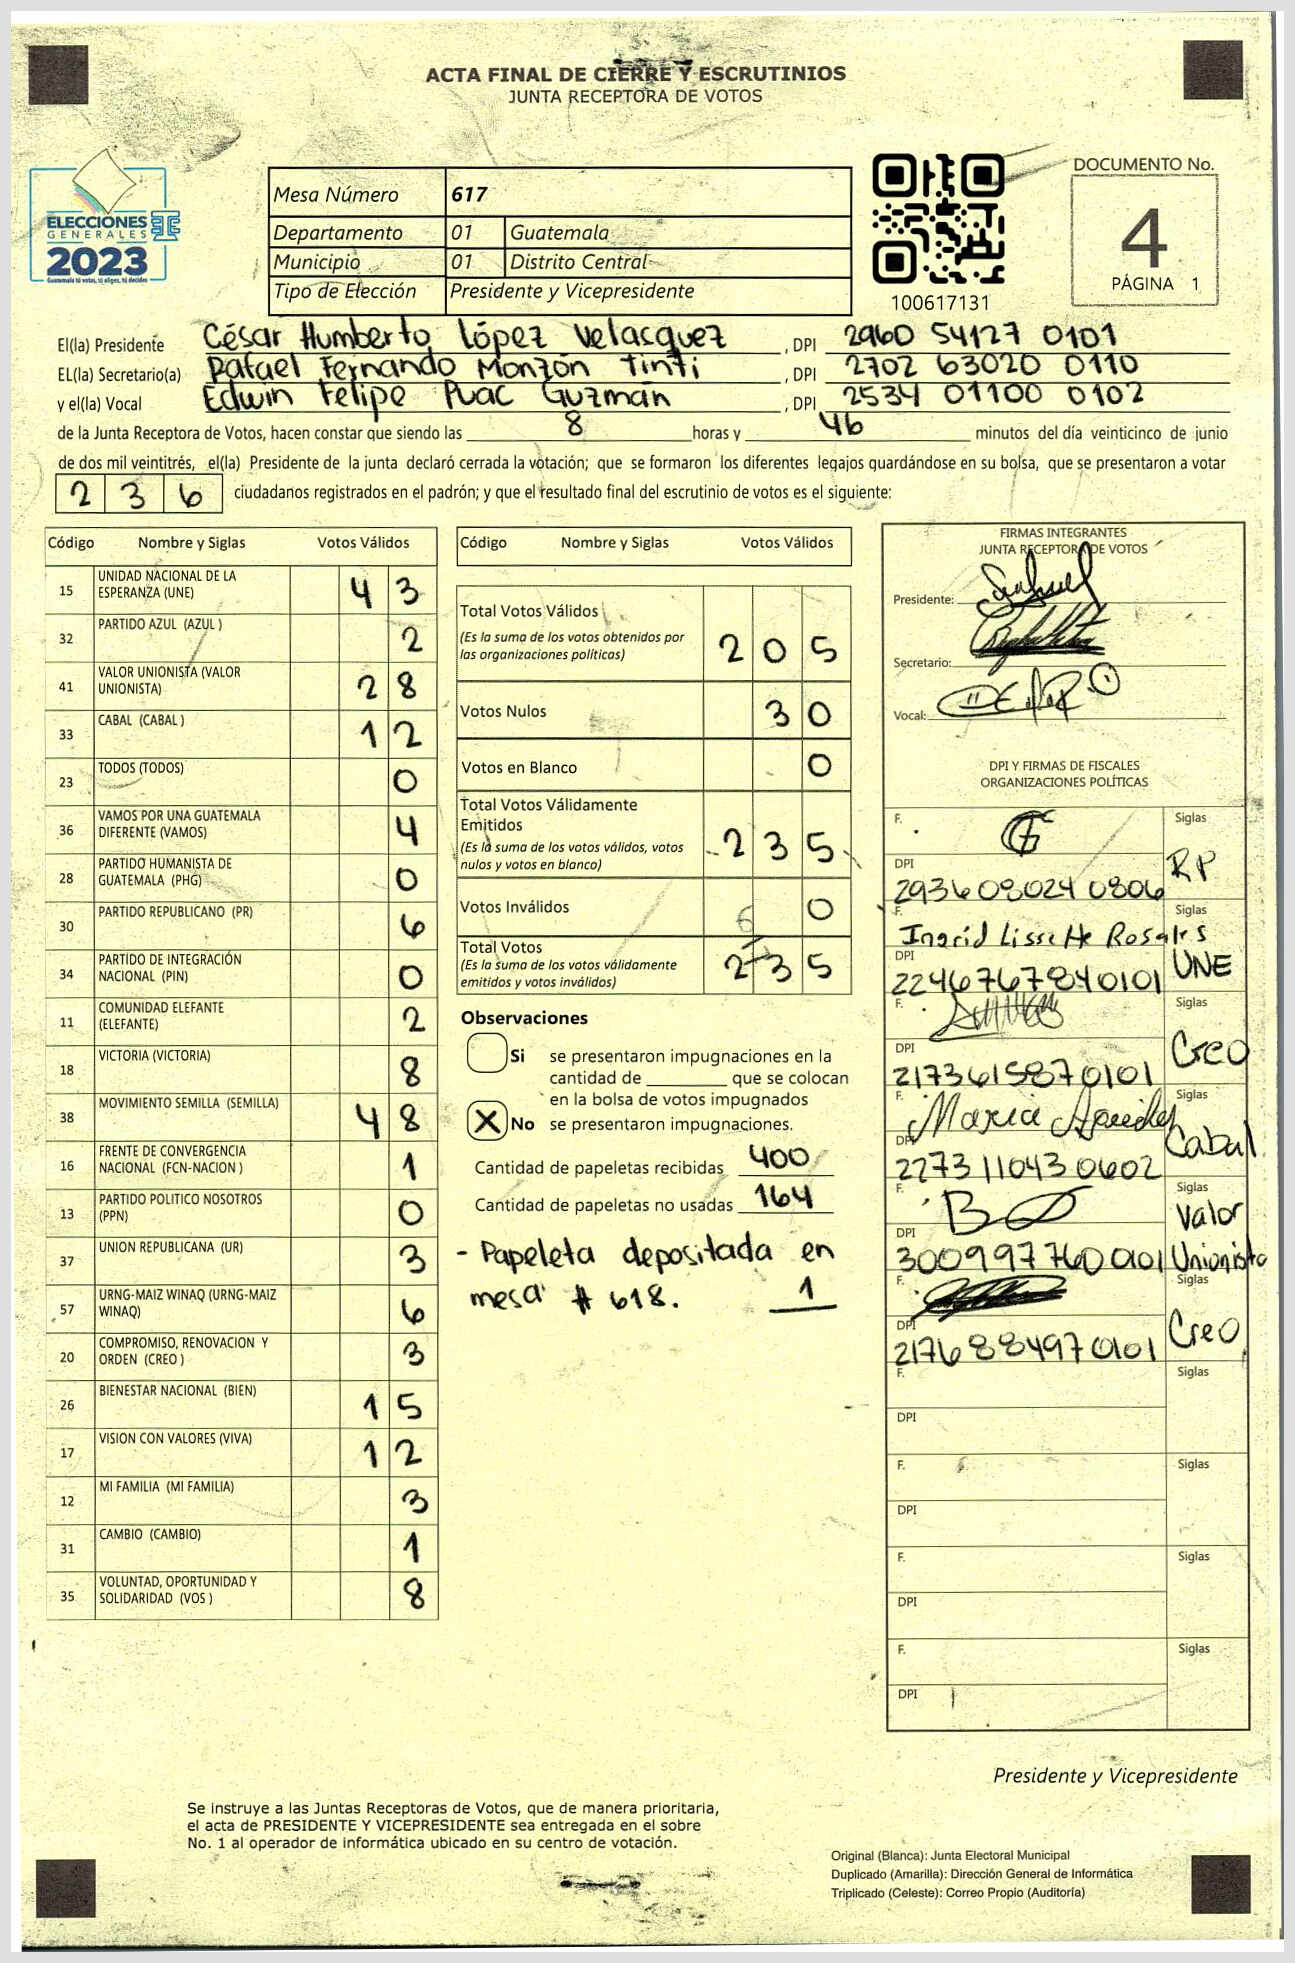 ACTA FINAL DE CIERRE Y ESCRUTINIOS
JUNTA RECEPTORA DE VOTOS
ELECCIONES
GENERALES
2023
Guatemala tú votas, tú eliges, tú decides
Mesa Número 617
Departamento 01 Guatemala
Municipio 01 Distrito Central
Tipo de Elección Presidente y Vicepresidente
100617131
DOCUMENTO No.
4
PÁGINA 1
El(la) Presidente César Humberto López Velasquez , DPI 2960 54127 0101
EL(la) Secretario(a) Rafael Fernando Monzón Tinti , DPI 2702 63020 0110
y el(la) Vocal Edwin Felipe Puac Guzmán , DPI 2534 01100 0102
de la Junta Receptora de Votos, hacen constar que siendo las 8 horas y 46 minutos del día veinticinco de junio
de dos mil veintitrés, el(la) Presidente de la junta declaró cerrada la votación; que se formaron los diferentes legajos guardándose en su bolsa, que se presentaron a votar
2 3 6 ciudadanos registrados en el padrón; y que el resultado final del escrutinio de votos es el siguiente:
Código Nombre y Siglas Votos Válidos
15 UNIDAD NACIONAL DE LA ESPERANZA (UNE) 4 3
32 PARTIDO AZUL (AZUL ) 2
41 VALOR UNIONISTA (VALOR UNIONISTA) 2 8
33 CABAL (CABAL ) 1 2
23 TODOS (TODOS) 0
36 VAMOS POR UNA GUATEMALA DIFERENTE (VAMOS) 4
28 PARTIDO HUMANISTA DE GUATEMALA (PHG) 0
30 PARTIDO REPUBLICANO (PR) 6
34 PARTIDO DE INTEGRACIÓN NACIONAL (PIN) 0
11 COMUNIDAD ELEFANTE (ELEFANTE) 2
18 VICTORIA (VICTORIA) 8
38 MOVIMIENTO SEMILLA (SEMILLA) 4 8
16 FRENTE DE CONVERGENCIA NACIONAL (FCN-NACION ) 1
13 PARTIDO POLITICO NOSOTROS (PPN) 0
37 UNION REPUBLICANA (UR) 3
57 URNG-MAIZ WINAQ (URNG-MAIZ WINAQ) 6
20 COMPROMISO, RENOVACION Y ORDEN (CREO ) 3
26 BIENESTAR NACIONAL (BIEN) 1 5
17 VISION CON VALORES (VIVA) 1 2
12 MI FAMILIA (MI FAMILIA) 3
31 CAMBIO (CAMBIO) 1
35 VOLUNTAD, OPORTUNIDAD Y SOLIDARIDAD (VOS ) 8
Código Nombre y Siglas Votos Válidos
Total Votos Válidos 2 0 5
(Es la suma de los votos obtenidos por
las organizaciones políticas)
Votos Nulos 3 0
Votos en Blanco 0
Total Votos Válidamente
Emitidos 2 3 5
(Es la suma de los votos válidos, votos
nulos y votos en blanco)
Votos Inválidos 0
Total Votos 2 3 5
(Es la suma de los votos válidamente
emitidos y votos inválidos)
Observaciones
Si se presentaron impugnaciones en la
cantidad de ________ que se colocan
en la bolsa de votos impugnados
X No se presentaron impugnaciones.
Cantidad de papeletas recibidas 400
Cantidad de papeletas no usadas 164
- Papeleta depositada en
mesa # 618. 1
FIRMAS INTEGRANTES
JUNTA RECEPTORA DE VOTOS
Presidente:
Secretario:
Vocal:
DPI Y FIRMAS DE FISCALES
ORGANIZACIONES POLÍTICAS
F. Siglas RP
DPI 2936080240806
F. Ingrid Lissette Rosales Siglas UNE
DPI 2246767840101
F. Siglas Creo
DPI 2173615870101
F. Maria Siglas Cabal
DPI 2273110430602
F. Siglas Valor Unionista
DPI 3009977600101
F. Siglas Creo
DPI 2176884970101
F. Siglas
DPI
F. Siglas
DPI
F. Siglas
DPI
F. Siglas
DPI
Presidente y Vicepresidente
Se instruye a las Juntas Receptoras de Votos, que de manera prioritaria,
el acta de PRESIDENTE Y VICEPRESIDENTE sea entregada en el sobre
No. 1 al operador de informática ubicado en su centro de votación.
Original (Blanca): Junta Electoral Municipal
Duplicado (Amarilla): Dirección General de Informática
Triplicado (Celeste): Correo Propio (Auditoría)